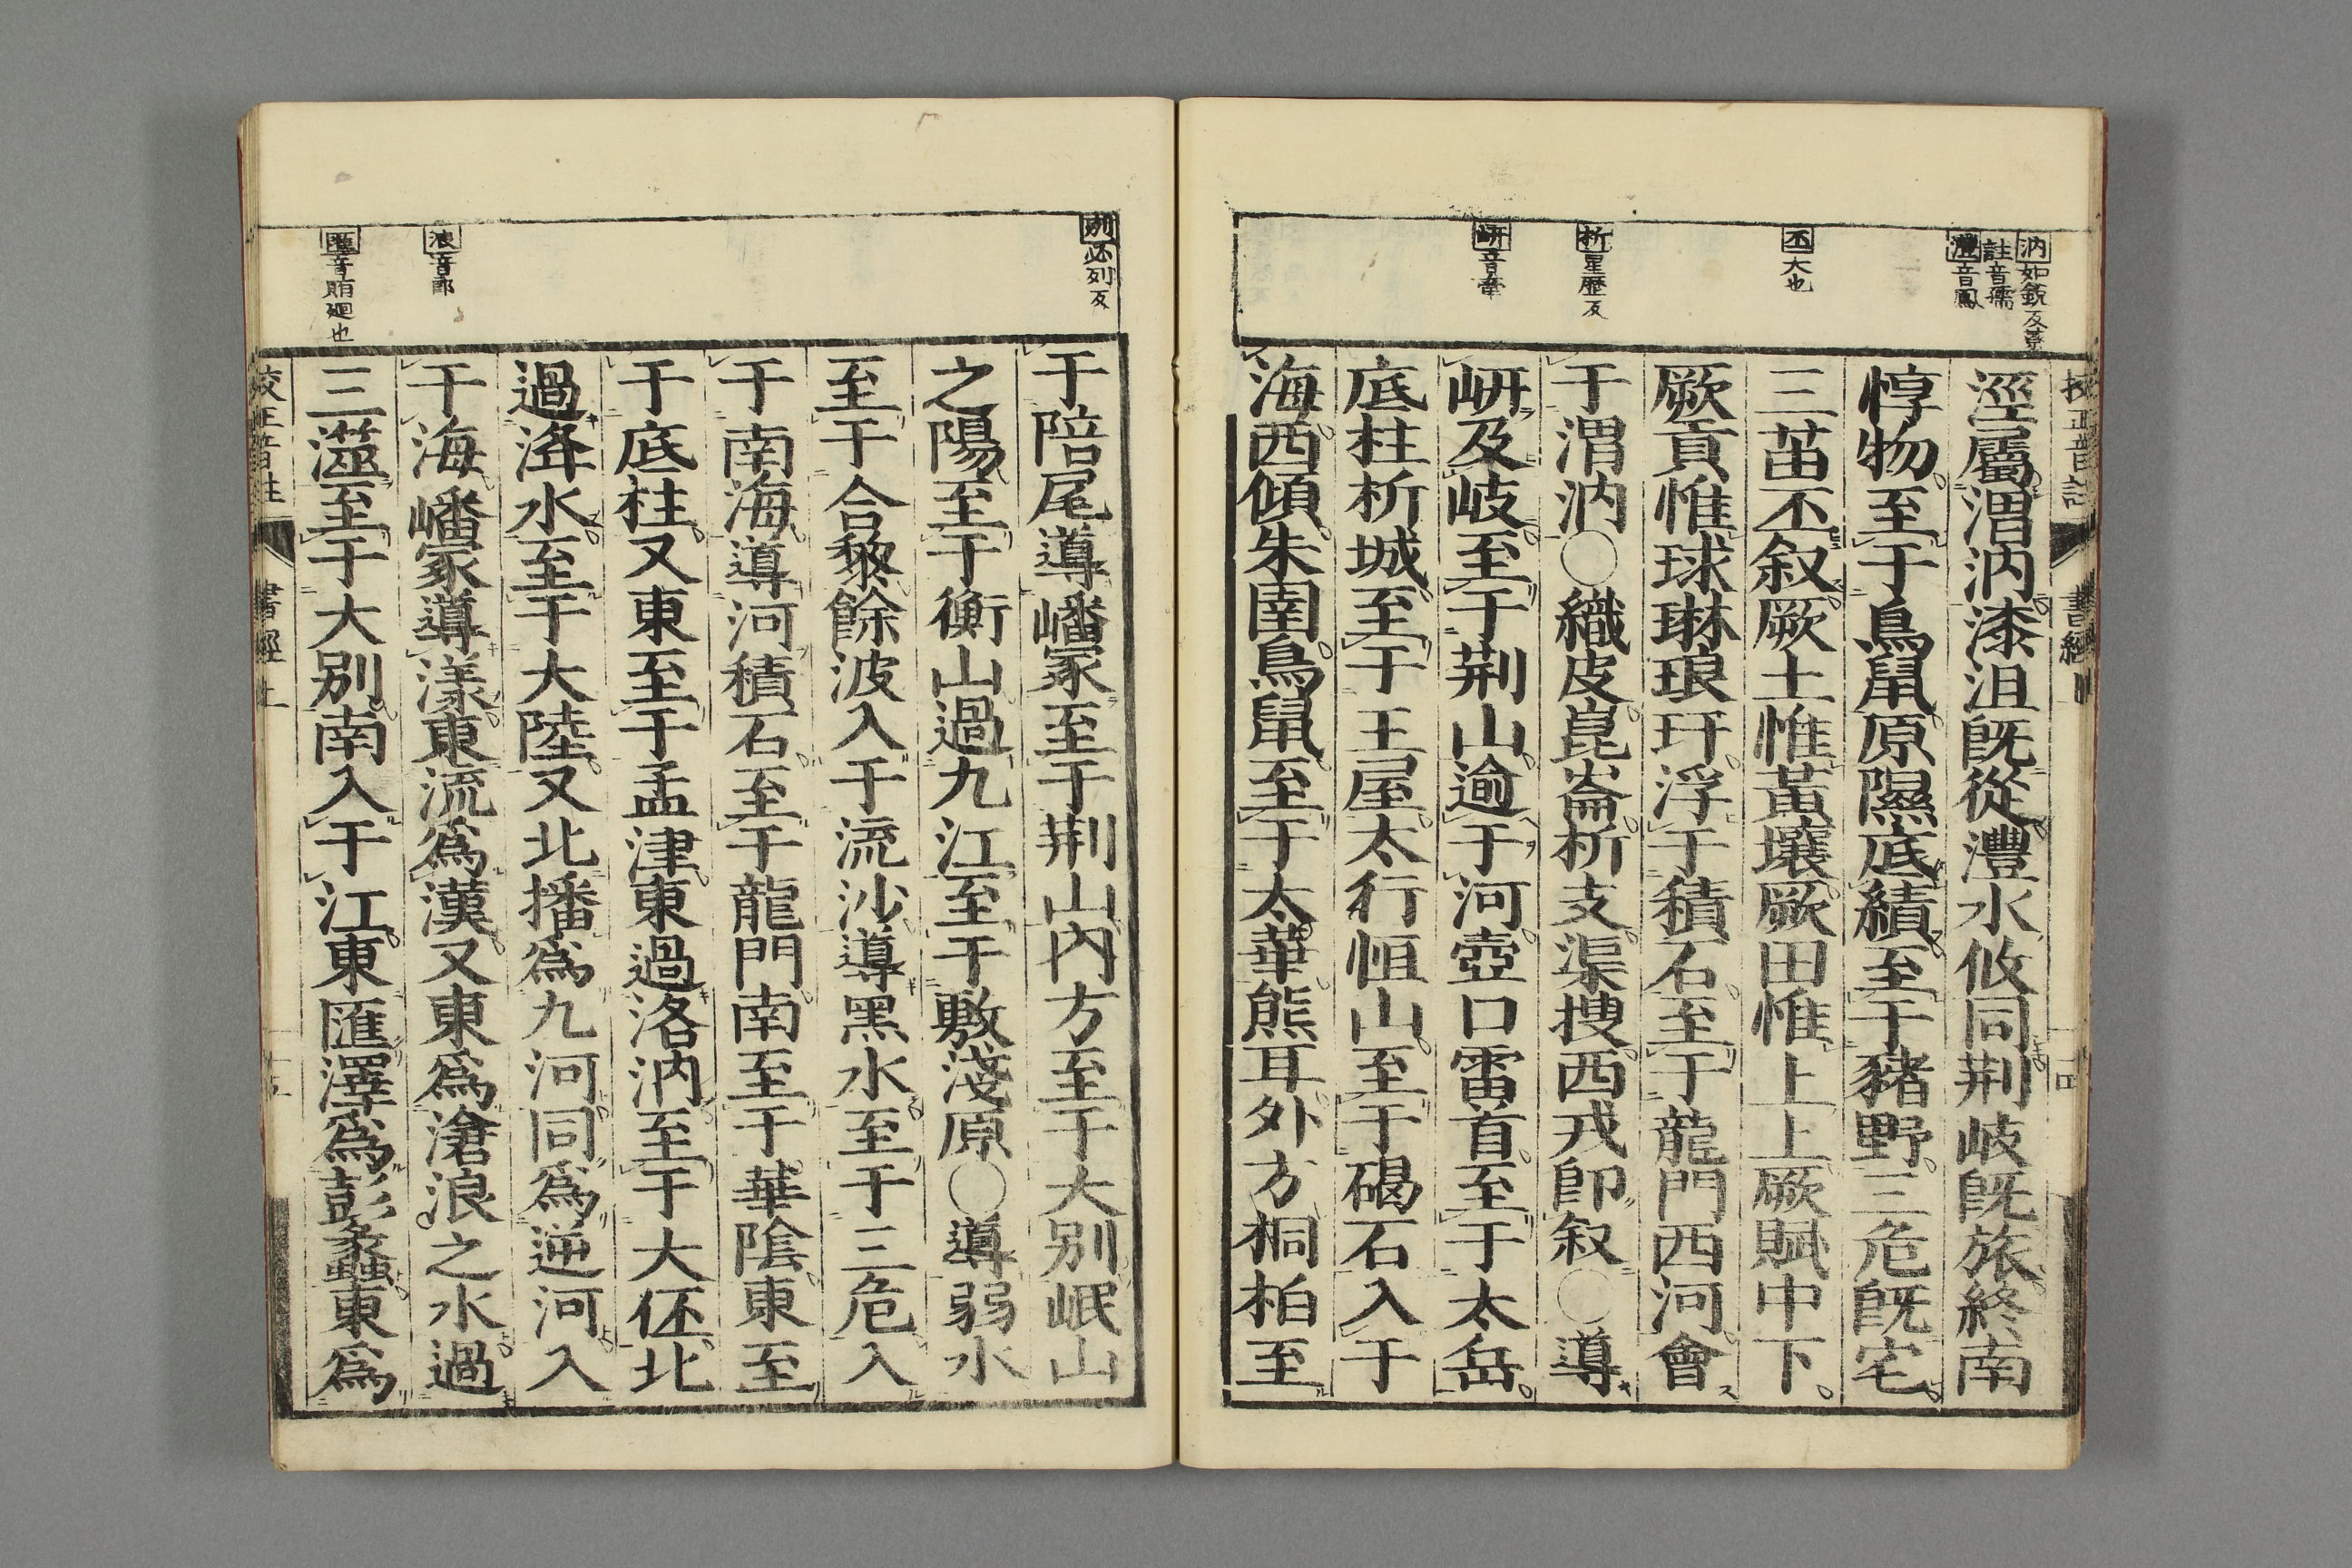 汭如鋭反蔡
註音孺
灃音鳳
丕大也
析星歴反
岍音牽
涇屬渭汭漆沮旣從灃水攸同荆岐旣旅終南
惇物至于鳥鼠原隰底績至于豬野三危旣宅
三苗丕叙厥土惟黃壤厥田惟上上厥賦中下
厥貢惟球琳琅玕浮于積石至于龍門西河會
于渭汭○織皮崑崙析支渠搜西戎卽叙○導
岍及岐至于荆山逾于河壺口雷首至于太岳
底柱析城至于王屋太行恒山至于碣石入于
海西傾朱圉鳥鼠至于太華熊耳外方桐柏至
別必列反
浪音郎
匯音賄廻也
于陪尾導嶓冢至于荆山內方至于大別岷山
之陽至于衡山過九江至于敷淺原○導弱水
至于合黎餘波入于流沙導黑水至于三危入
于南海導河積石至于龍門南至于華陰東至
于底柱又東至于孟津東過洛汭至于大伾北
過洚水至于大陸又北播爲九河同爲逆河入
于海嶓冢導漾東流爲漢又東爲滄浪之水過
三澨至于大別南入于江東匯澤爲彭蠡東爲
校正音註 書經上